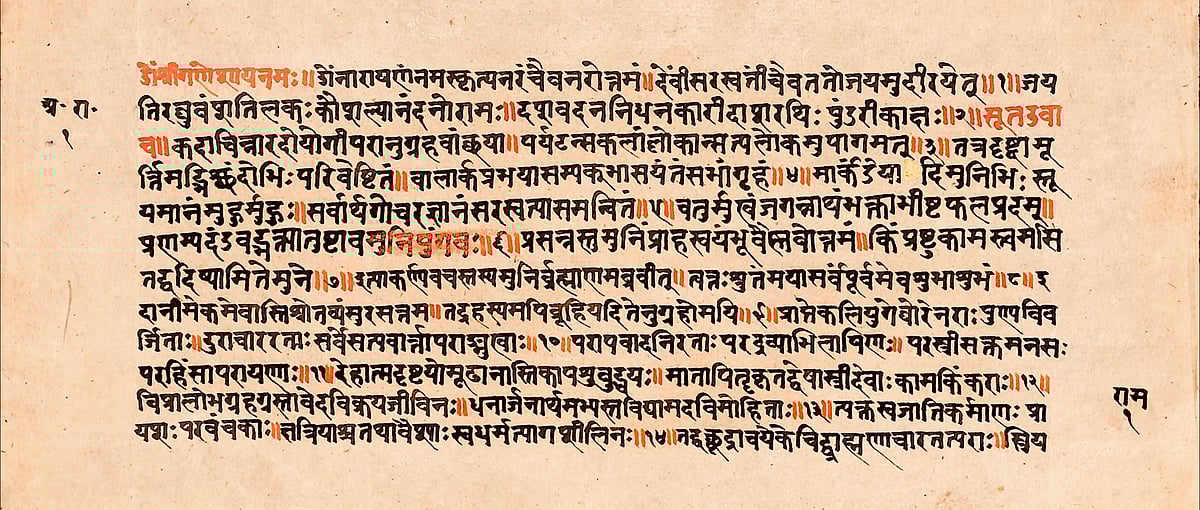 ॐश्रीगणेशायनमः॥ॐनारायणंनमस्कृत्यनरंचैवनरोत्तमं॥देवींसरस्वतींचैवततोजयमुदीरयेत्॥१॥जय
प्र॰ रा॰
१
तिरघुवंशतिलकः कौशल्यानंदनोरामः॥दशवदननिधनकारीदाशरथिः पुंडरीकाक्षः॥२॥सूतउवा
च॥कदाचिन्नारदोयोगीपरानुग्रहवांछया॥पर्यटन्सकलांलोकान्सत्यलोकमुपागमत्॥३॥तत्रदृष्ट्वामू
र्त्तिमद्भिश्छंदोभिः परिवेष्टितं॥बालार्कप्रभयासम्यक्भासयंतंसभांगृहं॥४॥मार्कंडेया दिमुनिभिः स्तू
यमानंमुहुर्मुहुः॥सर्वार्थगोचरज्ञानंसरस्वत्यासमन्वितं॥५॥चतुर्मुखंजगन्नाथंभक्ताभीष्टफलप्रदम्॥
प्रणम्यदंडवद्भक्त्यातुष्टावमुनिपुंगवः॥६॥प्रसन्नस्तुमुनिंप्राहस्वयंभूर्वैष्णवोत्तमं॥किंप्रष्टुकामस्त्वमसि
तद्वदिष्यामितेमुने॥७॥इत्याकर्ण्यवचस्तस्यमुनिर्ब्रह्माणमब्रवीत्॥त्वत्तःश्रुतंमयासर्वंपूर्वमेवशुभाशुभं॥८॥इ
दानीमेकमेवास्तिश्रोतव्यंसुरसत्तम॥तद्रहस्यमपिब्रूहियदितेनुग्रहोमयि॥९॥प्राप्तेकलियुगेघोरेनराःपुण्यविव
र्जिताः॥दुराचाररताःसर्वेसत्यवार्त्तापराङ्मुखाः॥१०॥परापवादनिरताःपरद्रव्याभिलाषिणः॥परस्त्रीसक्तमनसः
परहिंसापरायणाः॥११॥देहात्मदृष्टयोमूढानास्तिकापशुबुद्धयः॥मातापितृकृतद्वेषास्त्रीदेवाःकामकिंकराः॥१२॥
विप्रालोभग्रहग्रस्तावेदविक्रयजीविनः॥धनार्जनार्थमभ्यस्तविद्यामदविमोहिताः॥१३॥त्यक्तस्वजातिकर्माणः प्रा
राम
१
यशः परवंचकाः॥क्षत्रियाश्चतथावैश्याःस्वधर्मत्यागशीलिनः॥१४॥तद्वच्छूद्राश्चयेकेचिद्ब्राह्मणाचारतत्पराः॥स्त्रिय